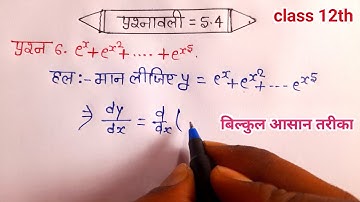 प्रश्नावली = 5.4
class 12th
प्रश्न 6. e^x + e^x² + ..... + e^x⁵.
हल:- मान लीजिए y = e^x + e^x² + --- e^x⁵
⇒ dy/dx = d/dx (
बिल्कुल आसान तरीका